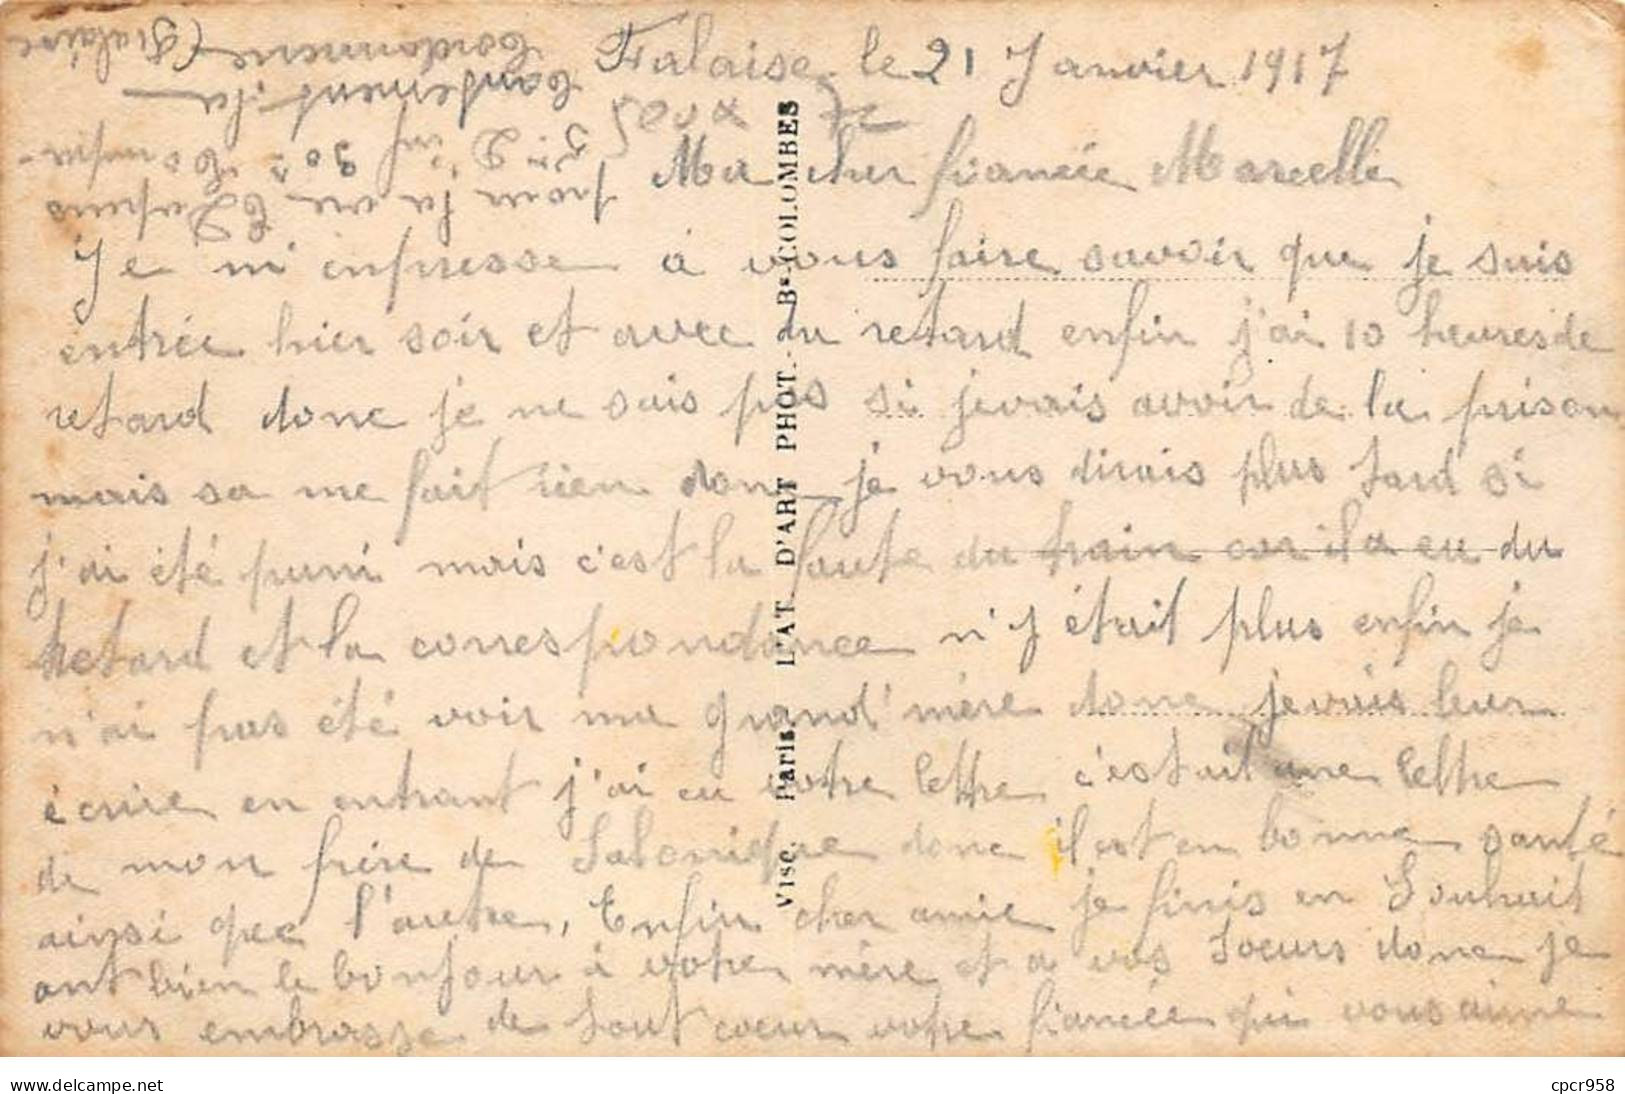 Falaise le 21 Janvier 1917
Ma cher fiancée Marcelle
Je m'enpresse a vous faire savoir que je suis
entrée hier soir et avec du retard enfin j'ai 10 heures de
retard donc je ne sais pas si jevais avoir de la prison
mais sa me fait rien donc je vous dirais plus tard si
j'ai été puni mais c'est la faute du train car il a eu du
retard et la correspondance n'y était plus enfin je
n'ai pas été voir ma grand'mère donc jevais leur
écrire en entrant j'ai eu votre lettre c'estait une lettre
de mon frére de Salonique donc il est en bonne santé
ainsi que l'autre, Enfin cher amie je finis en Souhait
ant bien le bonjour à votre mère et a vos soeurs donc je
vous embrasse de tout coeur votre fiancée qui vous aime
pour la vie E Dupuis
5me D'inf 30e Compa-
Cantonnement de la
Cordonnerie (Falaise
Visé, Paris. L'AT. D'ART PHOT. Bs-COLOMBES
delcampe.net
cpcr958